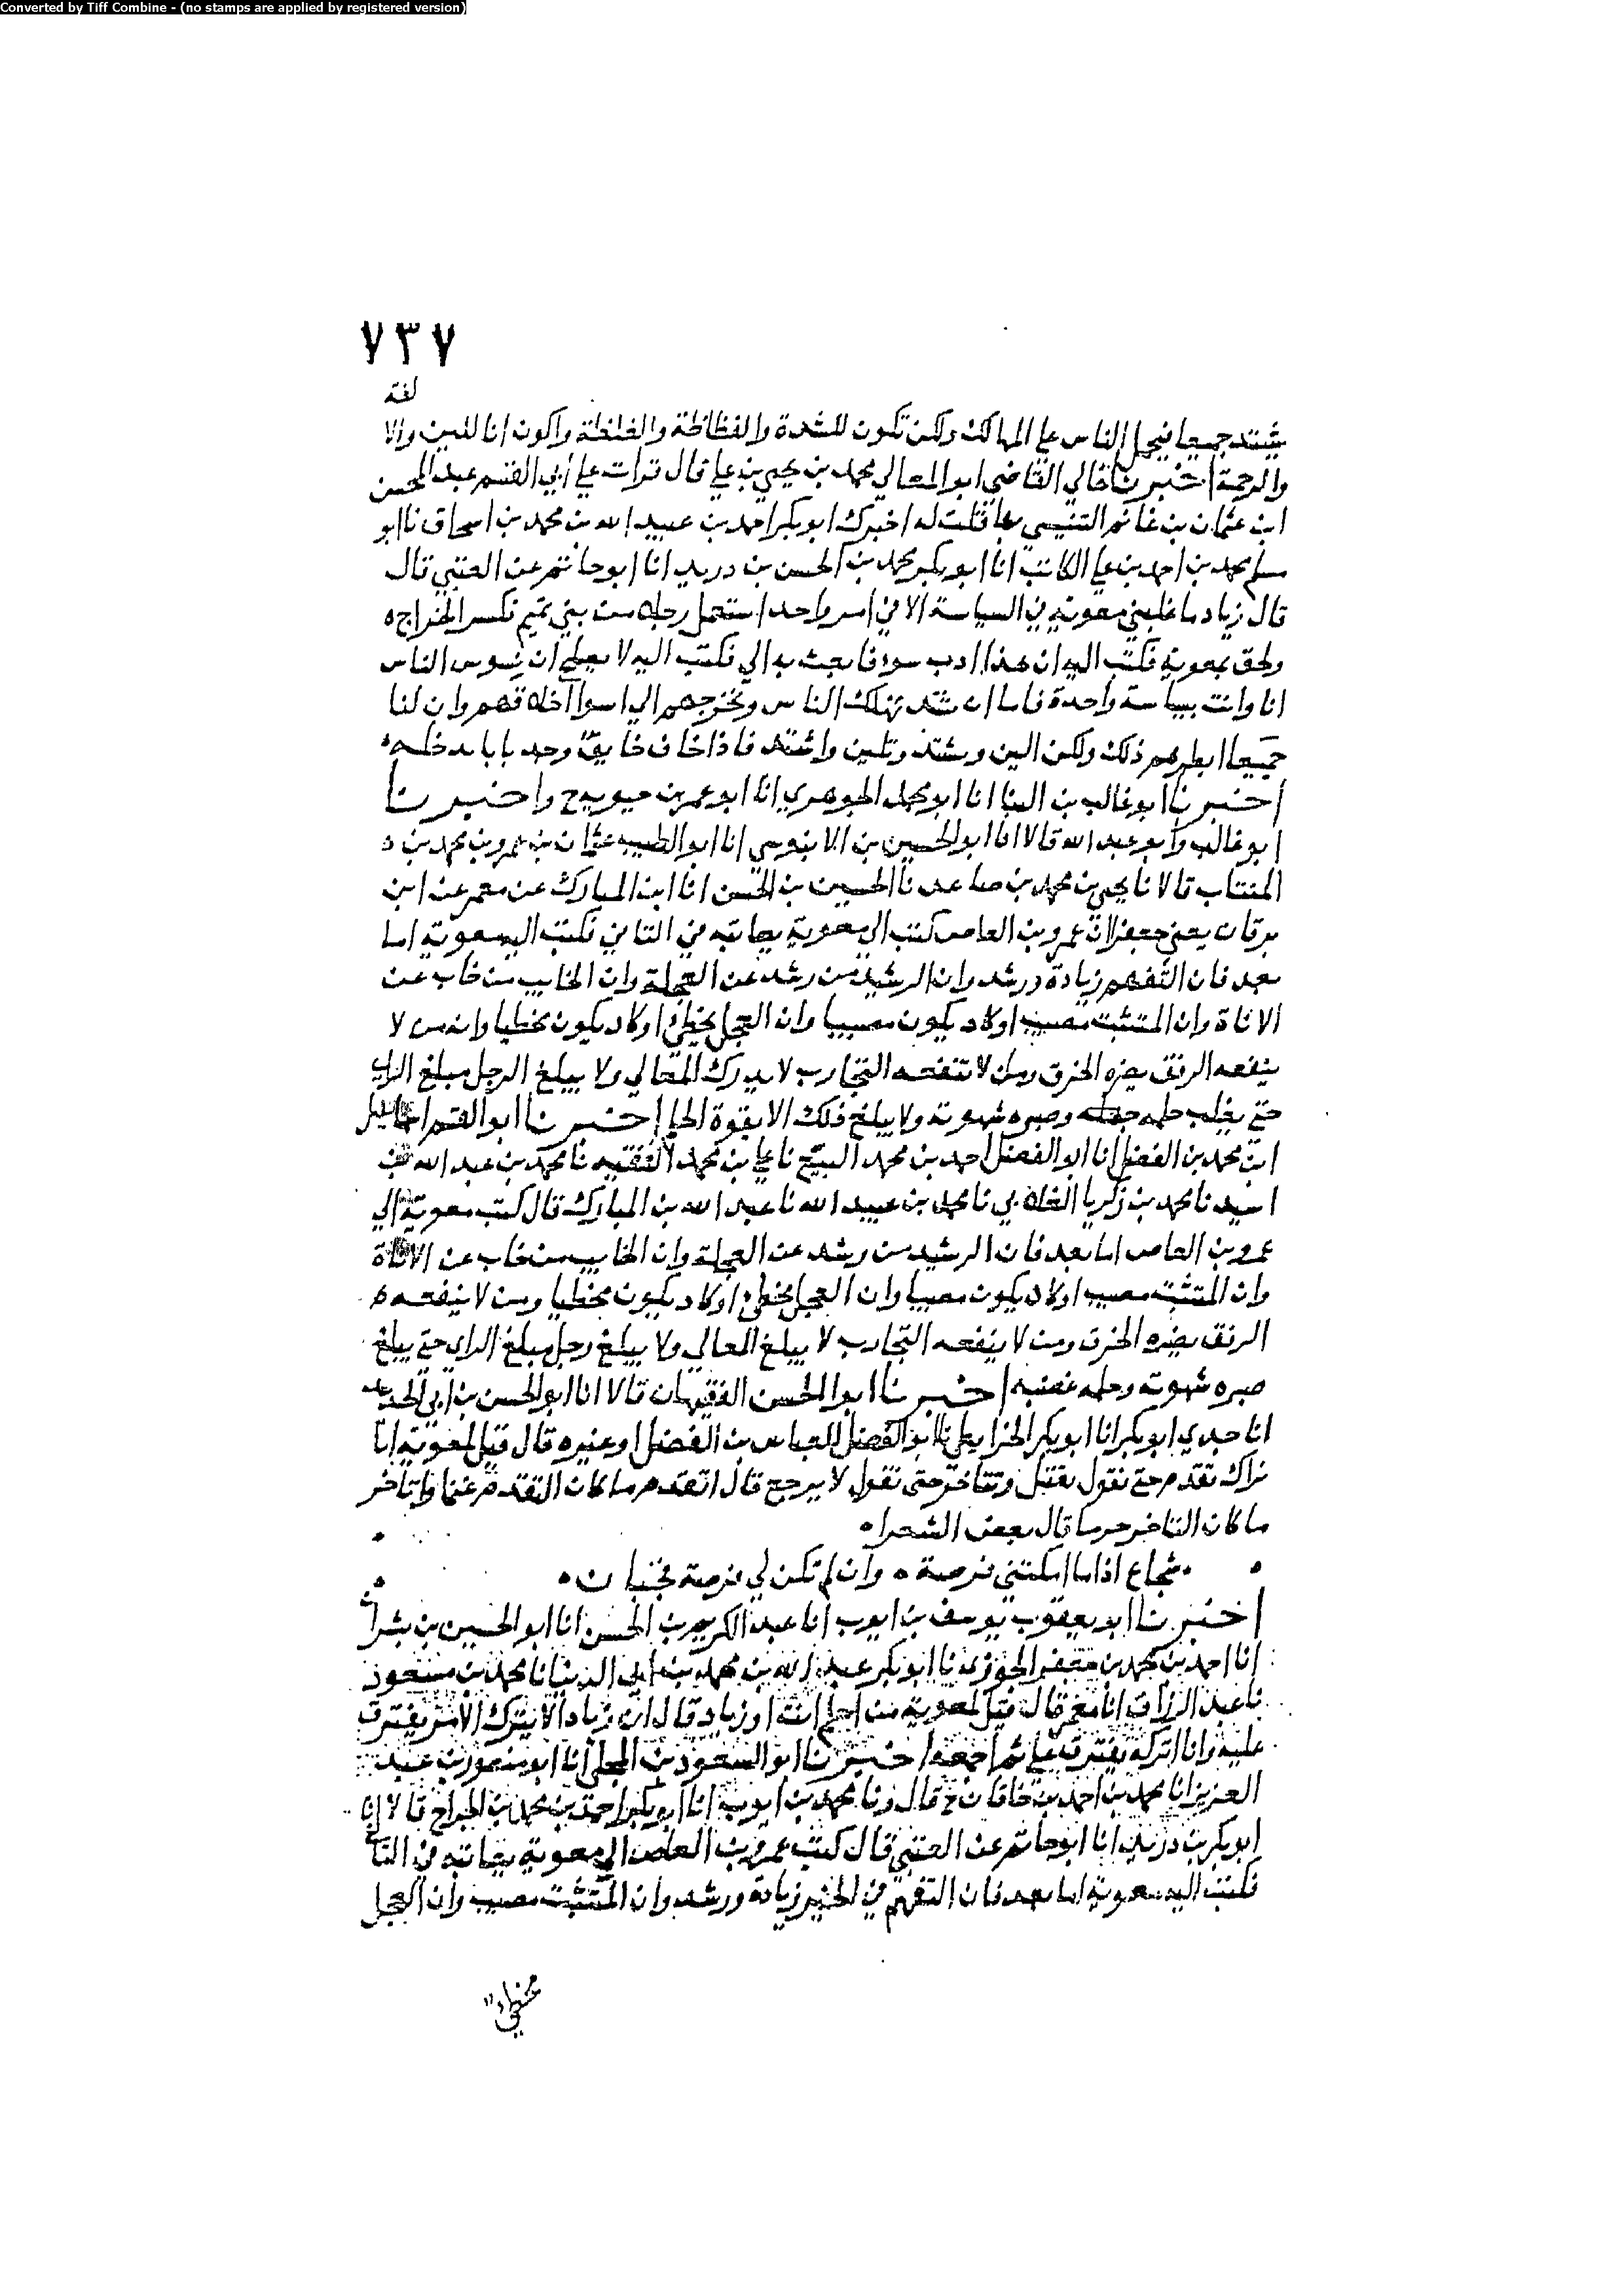 Converted by Tiff Combine - (no stamps are applied by registered version)
٧٣٧
لفة
يشتد جميعا فيحمل الناس علي المهالك ولكن تكون للشدة والفظاظة والغلظة واكون انا للين والا
والرحمة اخبرنا خالي القاضي ابو المعالي محمد بن يحيي بن علي قال قرات علي ابي القسم عبد المحسن
ابن عثمان بن غانم التنيسي بها قلت له اخبرك ابو بكر احمد بن عبيد الله بن محمد بن اسحاق نا ابو
مسلم محمد بن احمد بن علي الكاتب انا ابو بكر محمد بن الحسن بن دريد انا ابو حاتم عن العتبي قال
قال زياد ما غلبني معوية في السياسة الا في امر واحد استعمل رجلا من بني تميم فكسر الخراج ه
ولحق بمعوية فكتب اليه ان هذا ادب سوء فابعث به الي فكتب اليه لا يصلح ان نسوس الناس
انا وانت بسياسة واحدة فاما ان نشتد نهلك الناس ونخرجهم الي اسوا اخلاقهم وان لنا
جميعا ابطرهم ذلك ولكن الين وتشتد وتلين واشتد فاذا خاف خايف وجد بابا يدخله
اخبرنا ابو غالب بن البنا انا ابو محمد الجوهري انا ابو عمر بن حيويه ح واخبرنا
ابو غالب وابو عبد الله قالا انا ابو الحسين بن الابنوسي انا ابو الطيب عثمان بن عمرو بن محمد بن ه
المنتاب قالا نا يحيي بن محمد بن صاعد نا الحسين بن الحسن انا ابن المبارك عن معمر عن ابن
برقان يعني جعفرا ان عمرو بن العاص كتب الي معوية يعاتبه في التاني فكتب اليه معوية اما
بعد فان التفهم زيادة ورشد وان الرشيد من رشد عن العجلة وان الخايب من خاب عن
الاناة وان المتثبت مصيب او كاد يكون مصيبا وان العجل مخطي او كاد يكون مخطيا وانه من لا
ينفعه الرفق يضره الخرق ومن لا تنفعه التجارب لا يدرك المعالي ولا يبلغ الرجل مبلغ الراي
حتي يغلب حلمه جهله وصبره شهوته ولا يبلغ ذلك الا بقوة الحلم اخبرنا ابو القسم اسماعيل
ابن محمد بن الفضل انا ابو الفضل احمد بن محمد نا علي بن محمد الفقيه نا محمد بن عبد الله بن
اسيد نا محمد بن زكريا الغلابي نا محمد بن عبيد الله نا عبد الله بن المبارك قال كتب معوية الي
عمرو بن العاص اما بعد فان الرشيد من رشد عن العجلة وان الخايب من خاب عن الاناة
وان المتثبت مصيب او كاد يكون مصيبا وان العجل مخطي او كاد يكون مخطيا ومن لا ينفعه ه
الرفق يضره الخرق ومن لا ينفعه التجارب لا يبلغ المعالي ولا يبلغ رجل مبلغ الراي حتي يبلغ
صبره شهوته وحلمه غضبه اخبرنا ابوا الحسن الفقيهان قالا انا ابو الحسن بن ابي الحديد
انا جدي ابو بكر انا ابو بكر الخرايطي نا ابو الفضل العباس بن الفضل او غيره قال قيل لمعوية انا
نراك تقدم حتي نقول يقتل وتتاخر حتي نقول لا يرجع قال اتقدم ما كان التقدم غنما واتاخر
ما كان التاخر حزما قال بعض الشعراء
شجاع اذا ما امكنتني فرصة ه وان لم تكن لي فرصة فجبان ه
اخبرنا ابو يعقوب يوسف بن ايوب انا عبد الكريم بن الحسن انا ابو الحسين بن بشران
انا احمد بن محمد بن جعفر الجوزي نا ابو بكر عبد الله بن محمد بن ابي الدنيا نا محمد بن مسعود
نا عبد الرزاق انا معمر قال قيل لمعوية من احلم انت او زياد قال ان زيادا لا يترك الامر يفترق
عليه وانا اتركه يفترق علي ثم اجمعه اخبرنا ابو السعود بن المجلي انا ابو منصور بن عبد
العزيز انا محمد بن احمد بن خاقان ح قال ونا محمد بن ايوب انا ابو بكر احمد بن محمد بن الجراح قالا انا
ابو بكر بن دريد انا ابو حاتم عن العتبي قال كتب عمرو بن العاص الي معوية يعاتبه في التا
فكتب اليه معوية اما بعد فان التفهم في الخير زيادة ورشد وان المتثبت مصيب وان العجل
مخطي